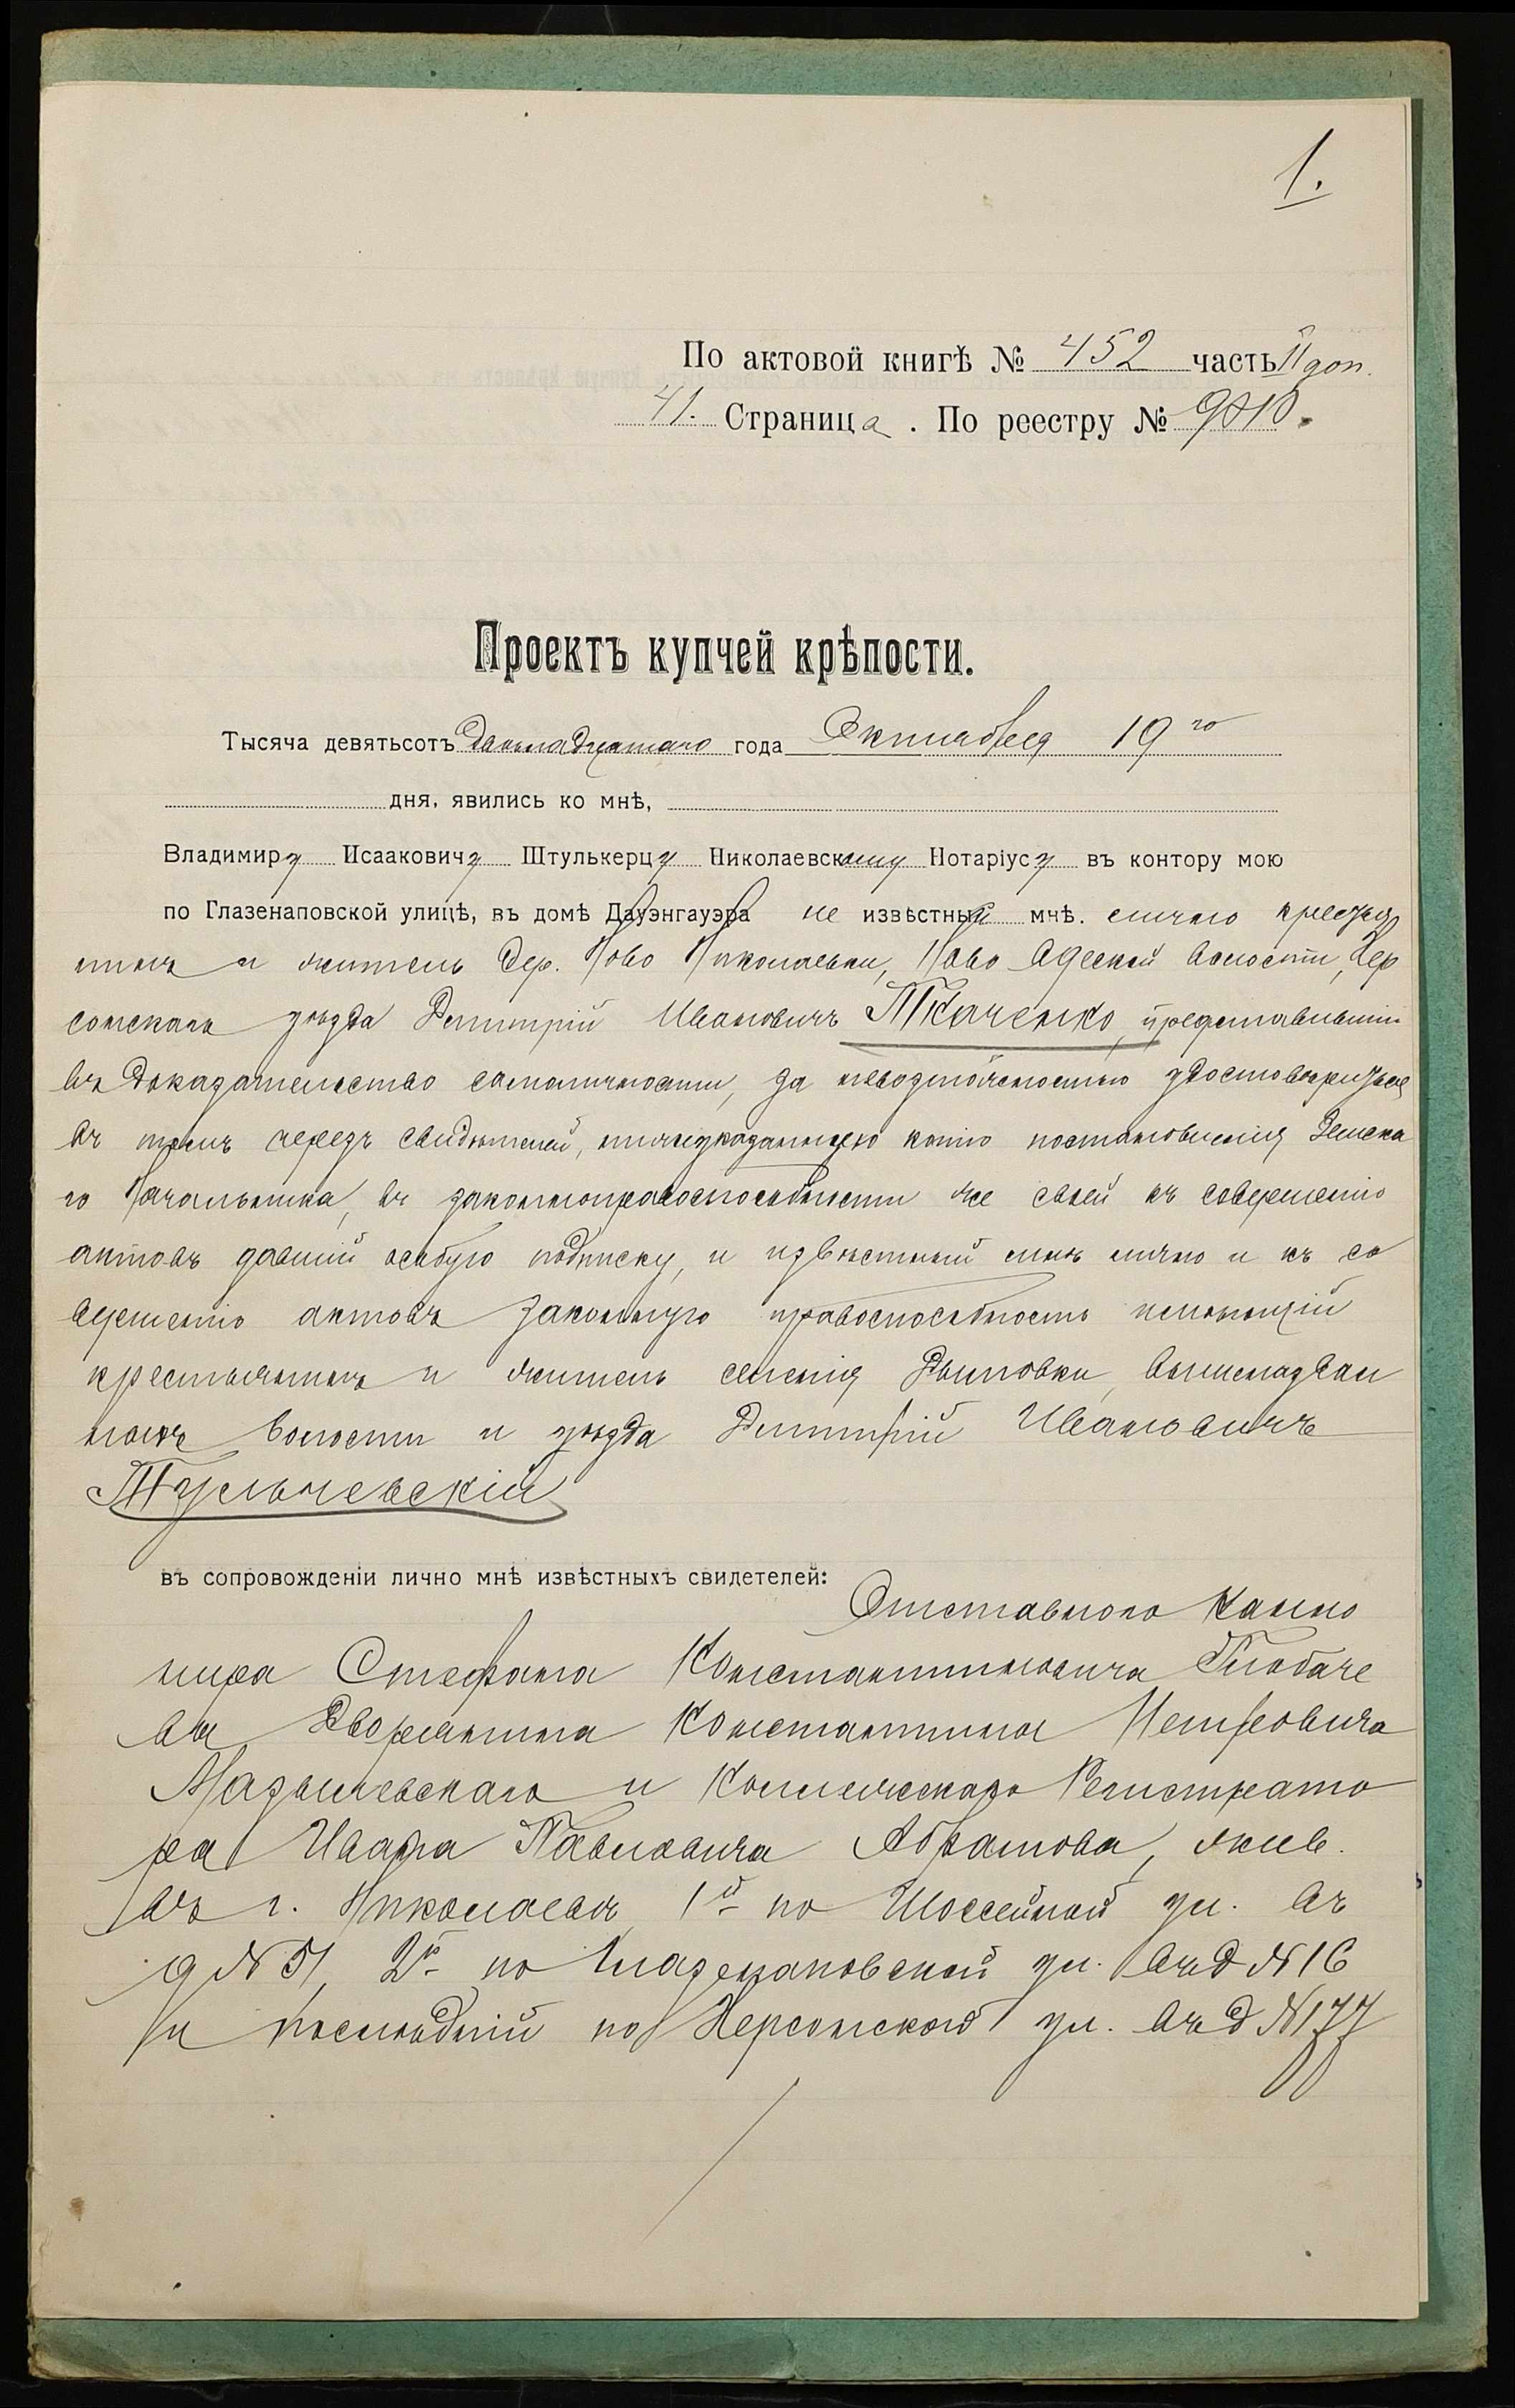 1.
По актовой книгѣ № 452 часть II доп.
41. Страница. По реестру № 9010.
Проектъ купчей крѣпости.
Тысяча девятьсотъ двѣнадцатаго года Октября 19 го
дня, явились ко мнѣ,
Владимиру Исааковичу Штулькерцу Николаевскому Нотаріусу въ контору мою
по Глазенаповской улицѣ, въ домѣ Дауэнгауэра не извѣстный мнѣ. лично крестья
нинъ и житель дер. Ново Николаевки, Ново Одесской волости, Хер
сонскаго уѣзда Дмитрій Ивановичъ Ткаченко, представившій
въ доказательство самоличности, за невозможностью удостовѣриться
въ томъ черезъ свидѣтелей, нижеуказанную копію постановленія Земска
го Начальника, въ законноправоспособности же своей къ совершенію
актовъ давшій особую подписку, и извѣстный мнѣ лично и къ со
вершенію актовъ законную правоспособность имѣющій
крестьянинъ и житель селенія Дымовки, вышеназван
ныхъ волости и уѣзда Дмитрій Ивановичъ
Тульчевскій
въ сопровожденіи лично мнѣ извѣстныхъ свидетелей:
Отставного Кано
нира Стефана Константиновича Глобаче
ва Дворянина Константина Петровича
Мазылевскаго и Коллежскаго Регистрато
ра Ивана Павловича Абрамова, жив.
въ г. Николаевѣ, 1й по Шоссейной ул. въ
д № 51, 2й по Глазенаповской ул. въ д № 16
и послѣдній по Херсонской ул. въ д № 177